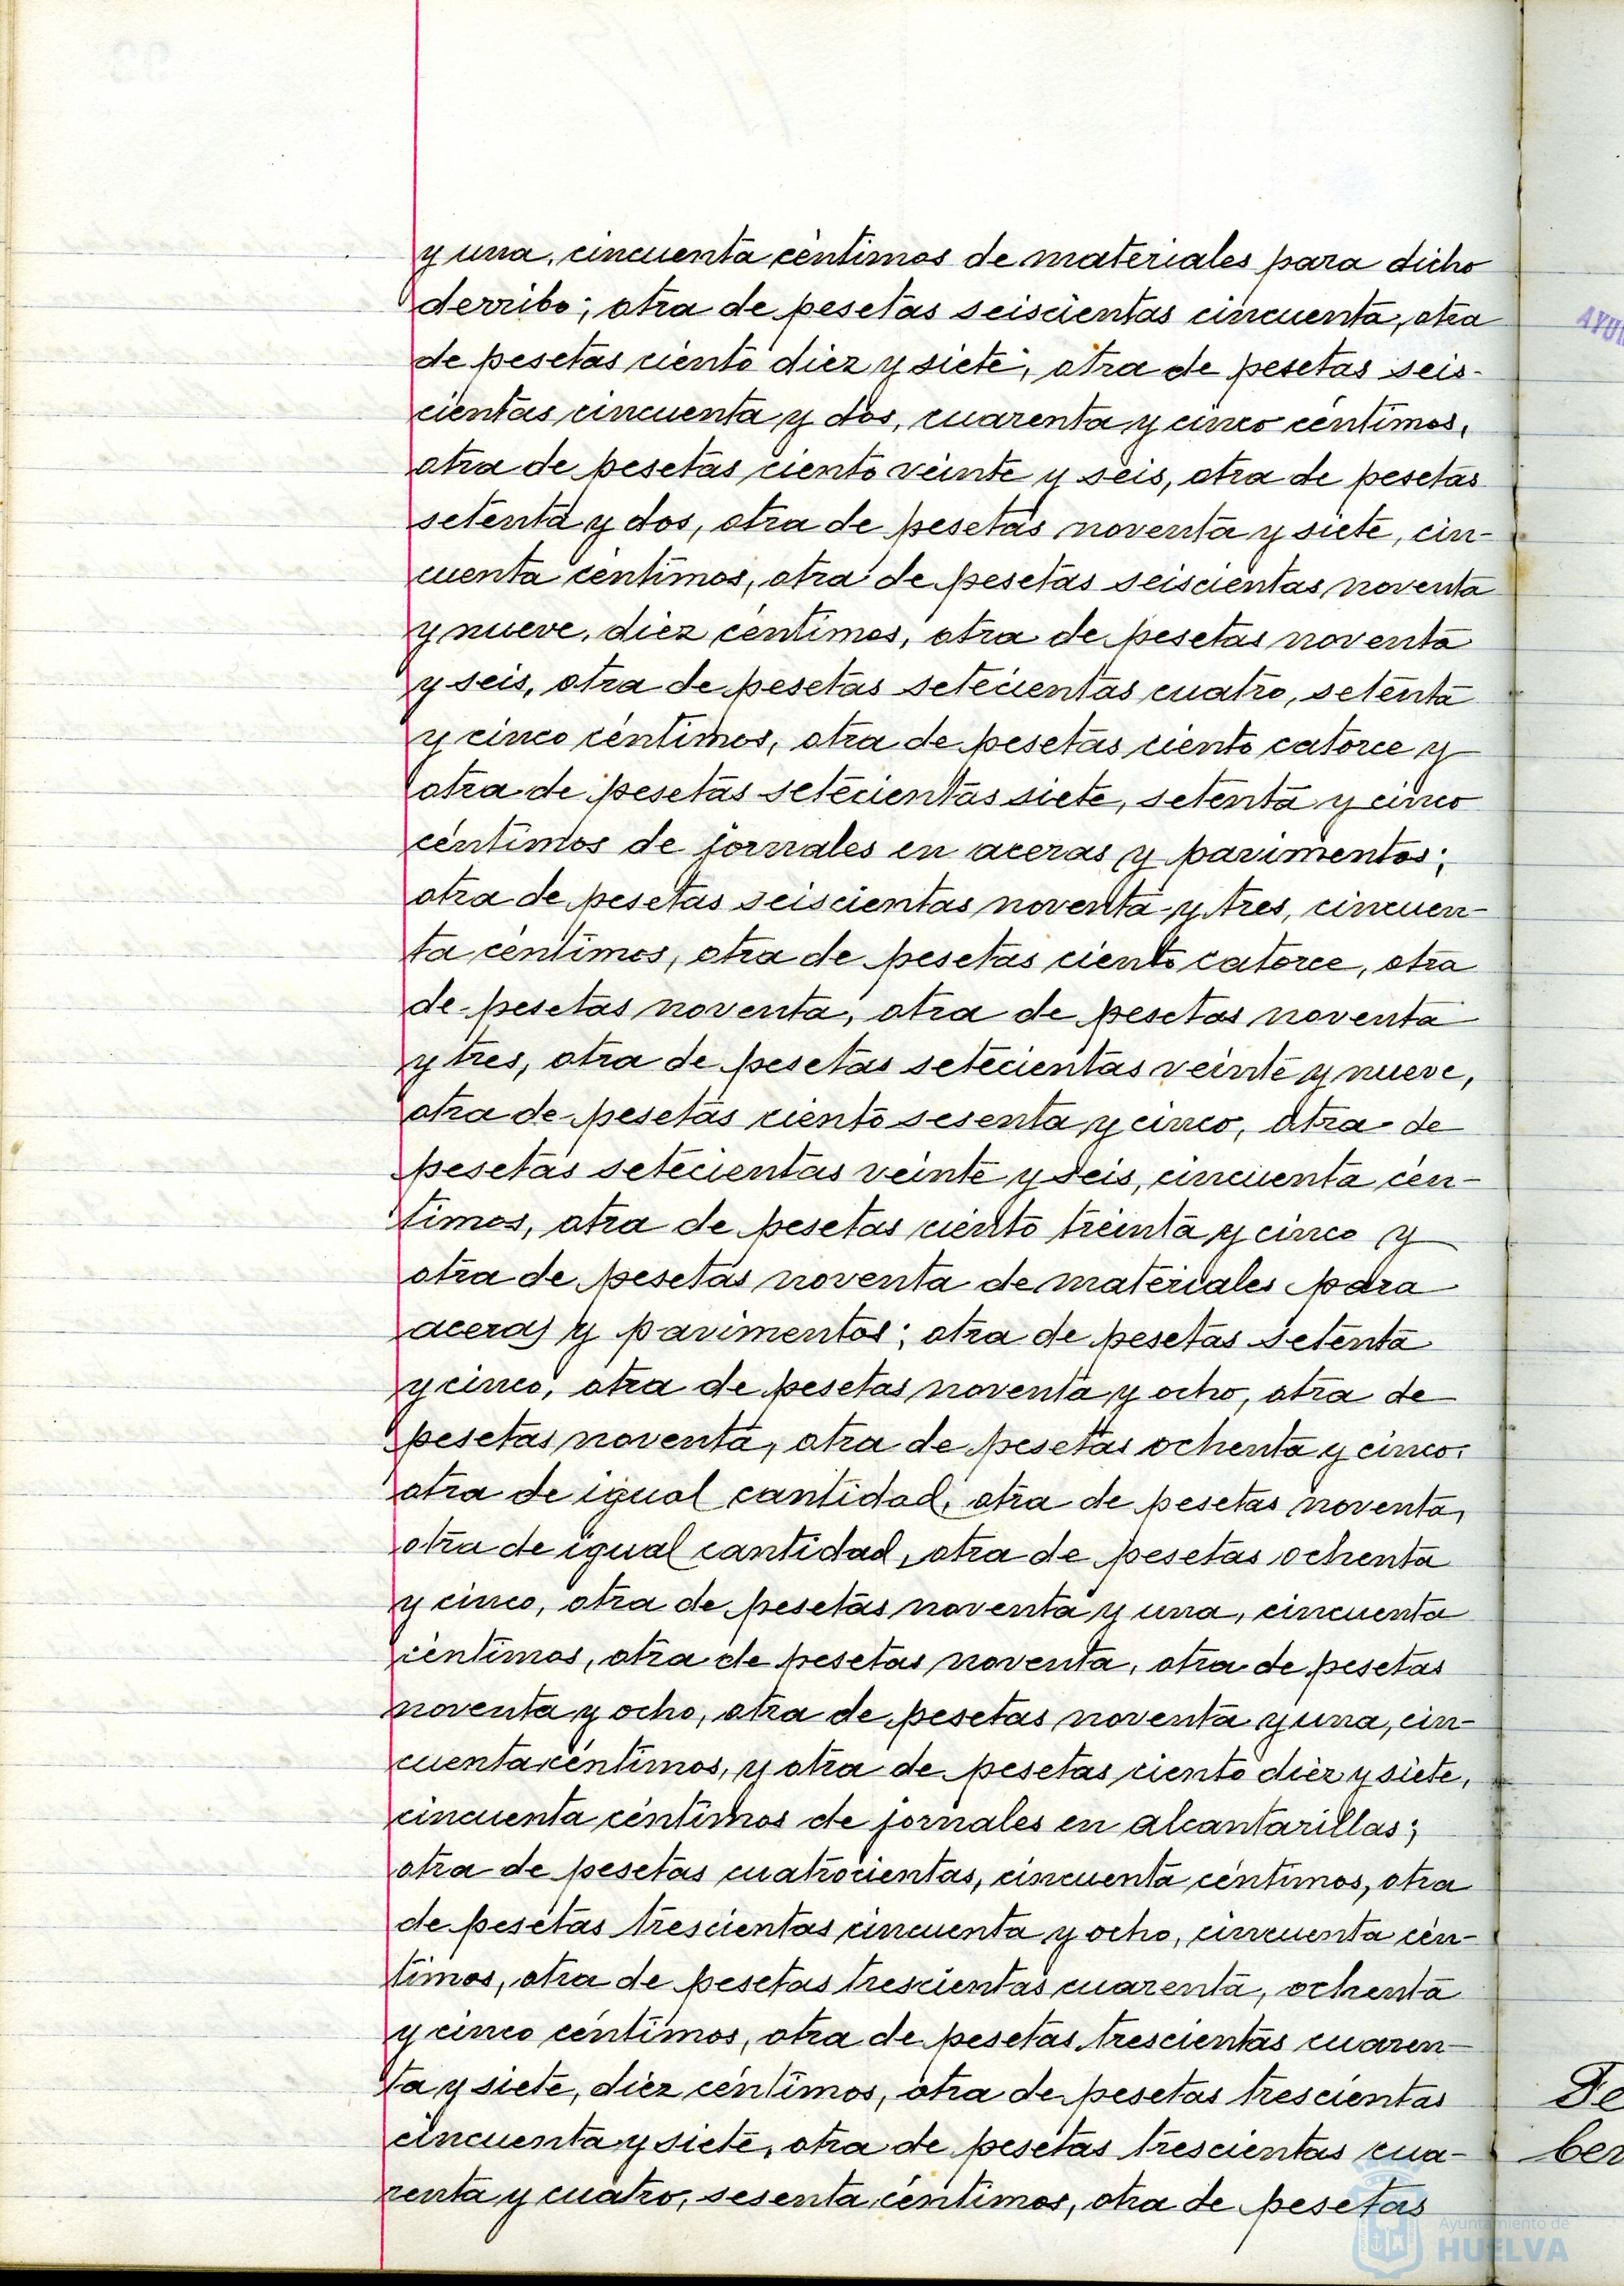 y una, cincuenta céntimos de materiales para dicho
derribo; otra de pesetas seiscientas cincuenta, otra
de pesetas ciento diez y siete, otra de pesetas seis-
cientas cincuenta y dos, cuarenta y cinco céntimos,
otra de pesetas ciento veinte y seis, otra de pesetas
setenta y dos, otra de pesetas noventa y siete, cin-
cuenta céntimos, otra de pesetas seiscientas noventa
y nueve, diez céntimos, otra de pesetas noventa
y seis, otra de pesetas setecientas cuatro, setenta
y cinco céntimos, otra de pesetas ciento catorce y
otra de pesetas setecientas siete, setenta y cinco
céntimos de jornales en aceras y pavimentos;
otra de pesetas seiscientas noventa y tres, cincuen-
ta céntimos, otra de pesetas ciento catorce, otra
de pesetas noventa, otra de pesetas noventa
y tres, otra de pesetas setecientas veinte y nueve,
otra de pesetas ciento sesenta y cinco, otra de
pesetas setecientas veinte y seis, cincuenta cén-
timos, otra de pesetas ciento treinta y cinco y
otra de pesetas noventa de materiales para
aceras y pavimentos; otra de pesetas setenta
y cinco, otra de pesetas noventa y ocho, otra de
pesetas noventa, otra de pesetas ochenta y cinco,
otra de igual cantidad, otra de pesetas noventa,
otra de igual cantidad, otra de pesetas ochenta
y cinco, otra de pesetas noventa y una, cincuenta
céntimos, otra de pesetas noventa, otra de pesetas
noventa y ocho, otra de pesetas noventa y una, cin-
cuenta céntimos, y otra de pesetas ciento diez y siete,
cincuenta céntimos de jornales en alcantarillas;
otra de pesetas cuatrocientas, cincuenta céntimos, otra
de pesetas trescientas cincuenta y ocho, cincuenta cén-
timos, otra de pesetas trescientas cuarenta, ochenta
y cinco céntimos, otra de pesetas trescientas cuaren-
ta y siete, diez céntimos, otra de pesetas trescientas
cincuenta y siete, otra de pesetas trescientas cua-
renta y cuatro, sesenta céntimos, otra de pesetas
Ayuntamiento de
HUELVA